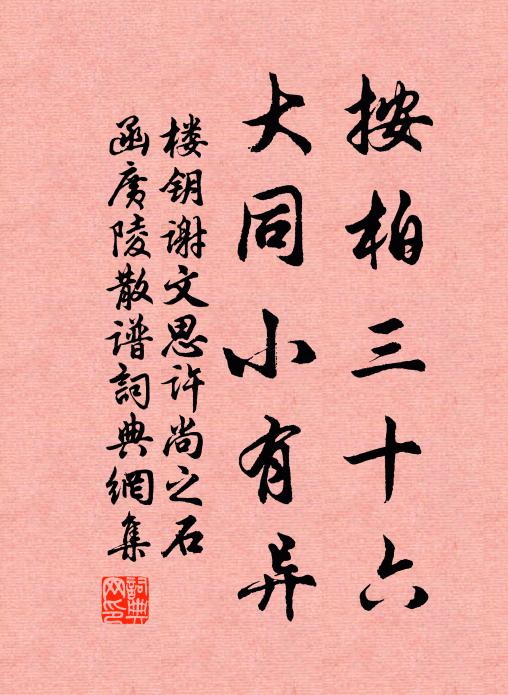 按柏三十六
大同小有异
楼钥谢文思许尚之石
函廣陵散谱詞典網集
詞典网印